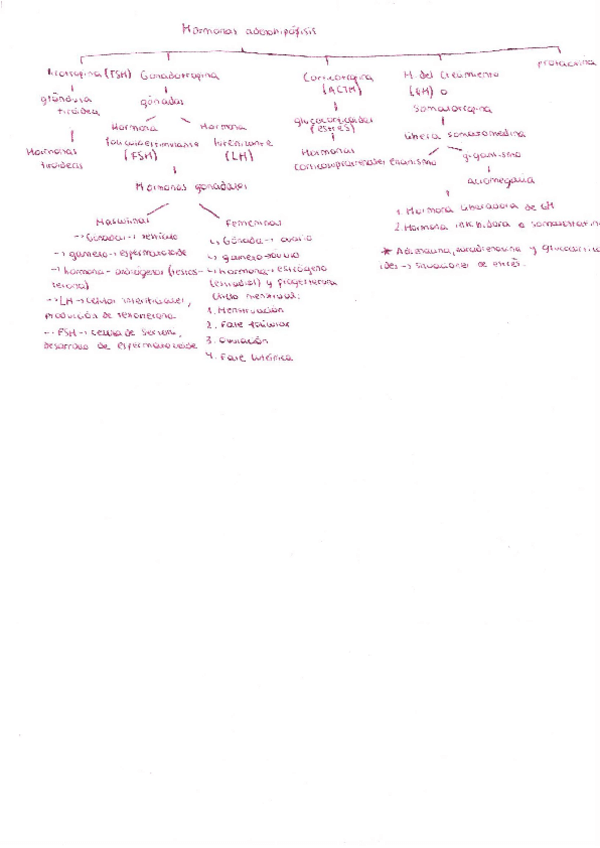 Hormonas adenohipófisis
Tirotropina (TSH)
glándula
tiroidea
Hormonas
tiroideas
Gonadotropina
gónadas
Hormona
foliculoestimulante
(FSH)
Hormona
luteinizante
(LH)
Hormonas gonadales
Masculinas
→ Gónadas → testículo
→ gameto → espermatozoide
→ hormona → andrógenos (testos-
terona)
→ LH → células intersticiales,
producción de testosterona
→ FSH → células de Sertoli,
desarrollo de espermatozoide
Femeninas
↳ Gónada → ovario
↳ gameto → óvulo
↳ Hormona → estrógeno
(estradiol) y progesterona
Ciclo menstrual:
1. Menstruación
2. Fase folicular
3. Ovulación
4. Fase luteínica
Corticotropina
(ACTH)
glucocorticoides
(estrés)
Hormonas
corticosuprarrenales
H. del Crecimiento
(GH) o
Somatotropina
libera somatomedina
enanismo
gigantismo
acromegalia
1. Hormona liberadora de GH
2. Hormona inhibidora o somatostatina
* Adrenalina, noradrenalina y glucocortico
ides → situaciones de estrés.
prolactina